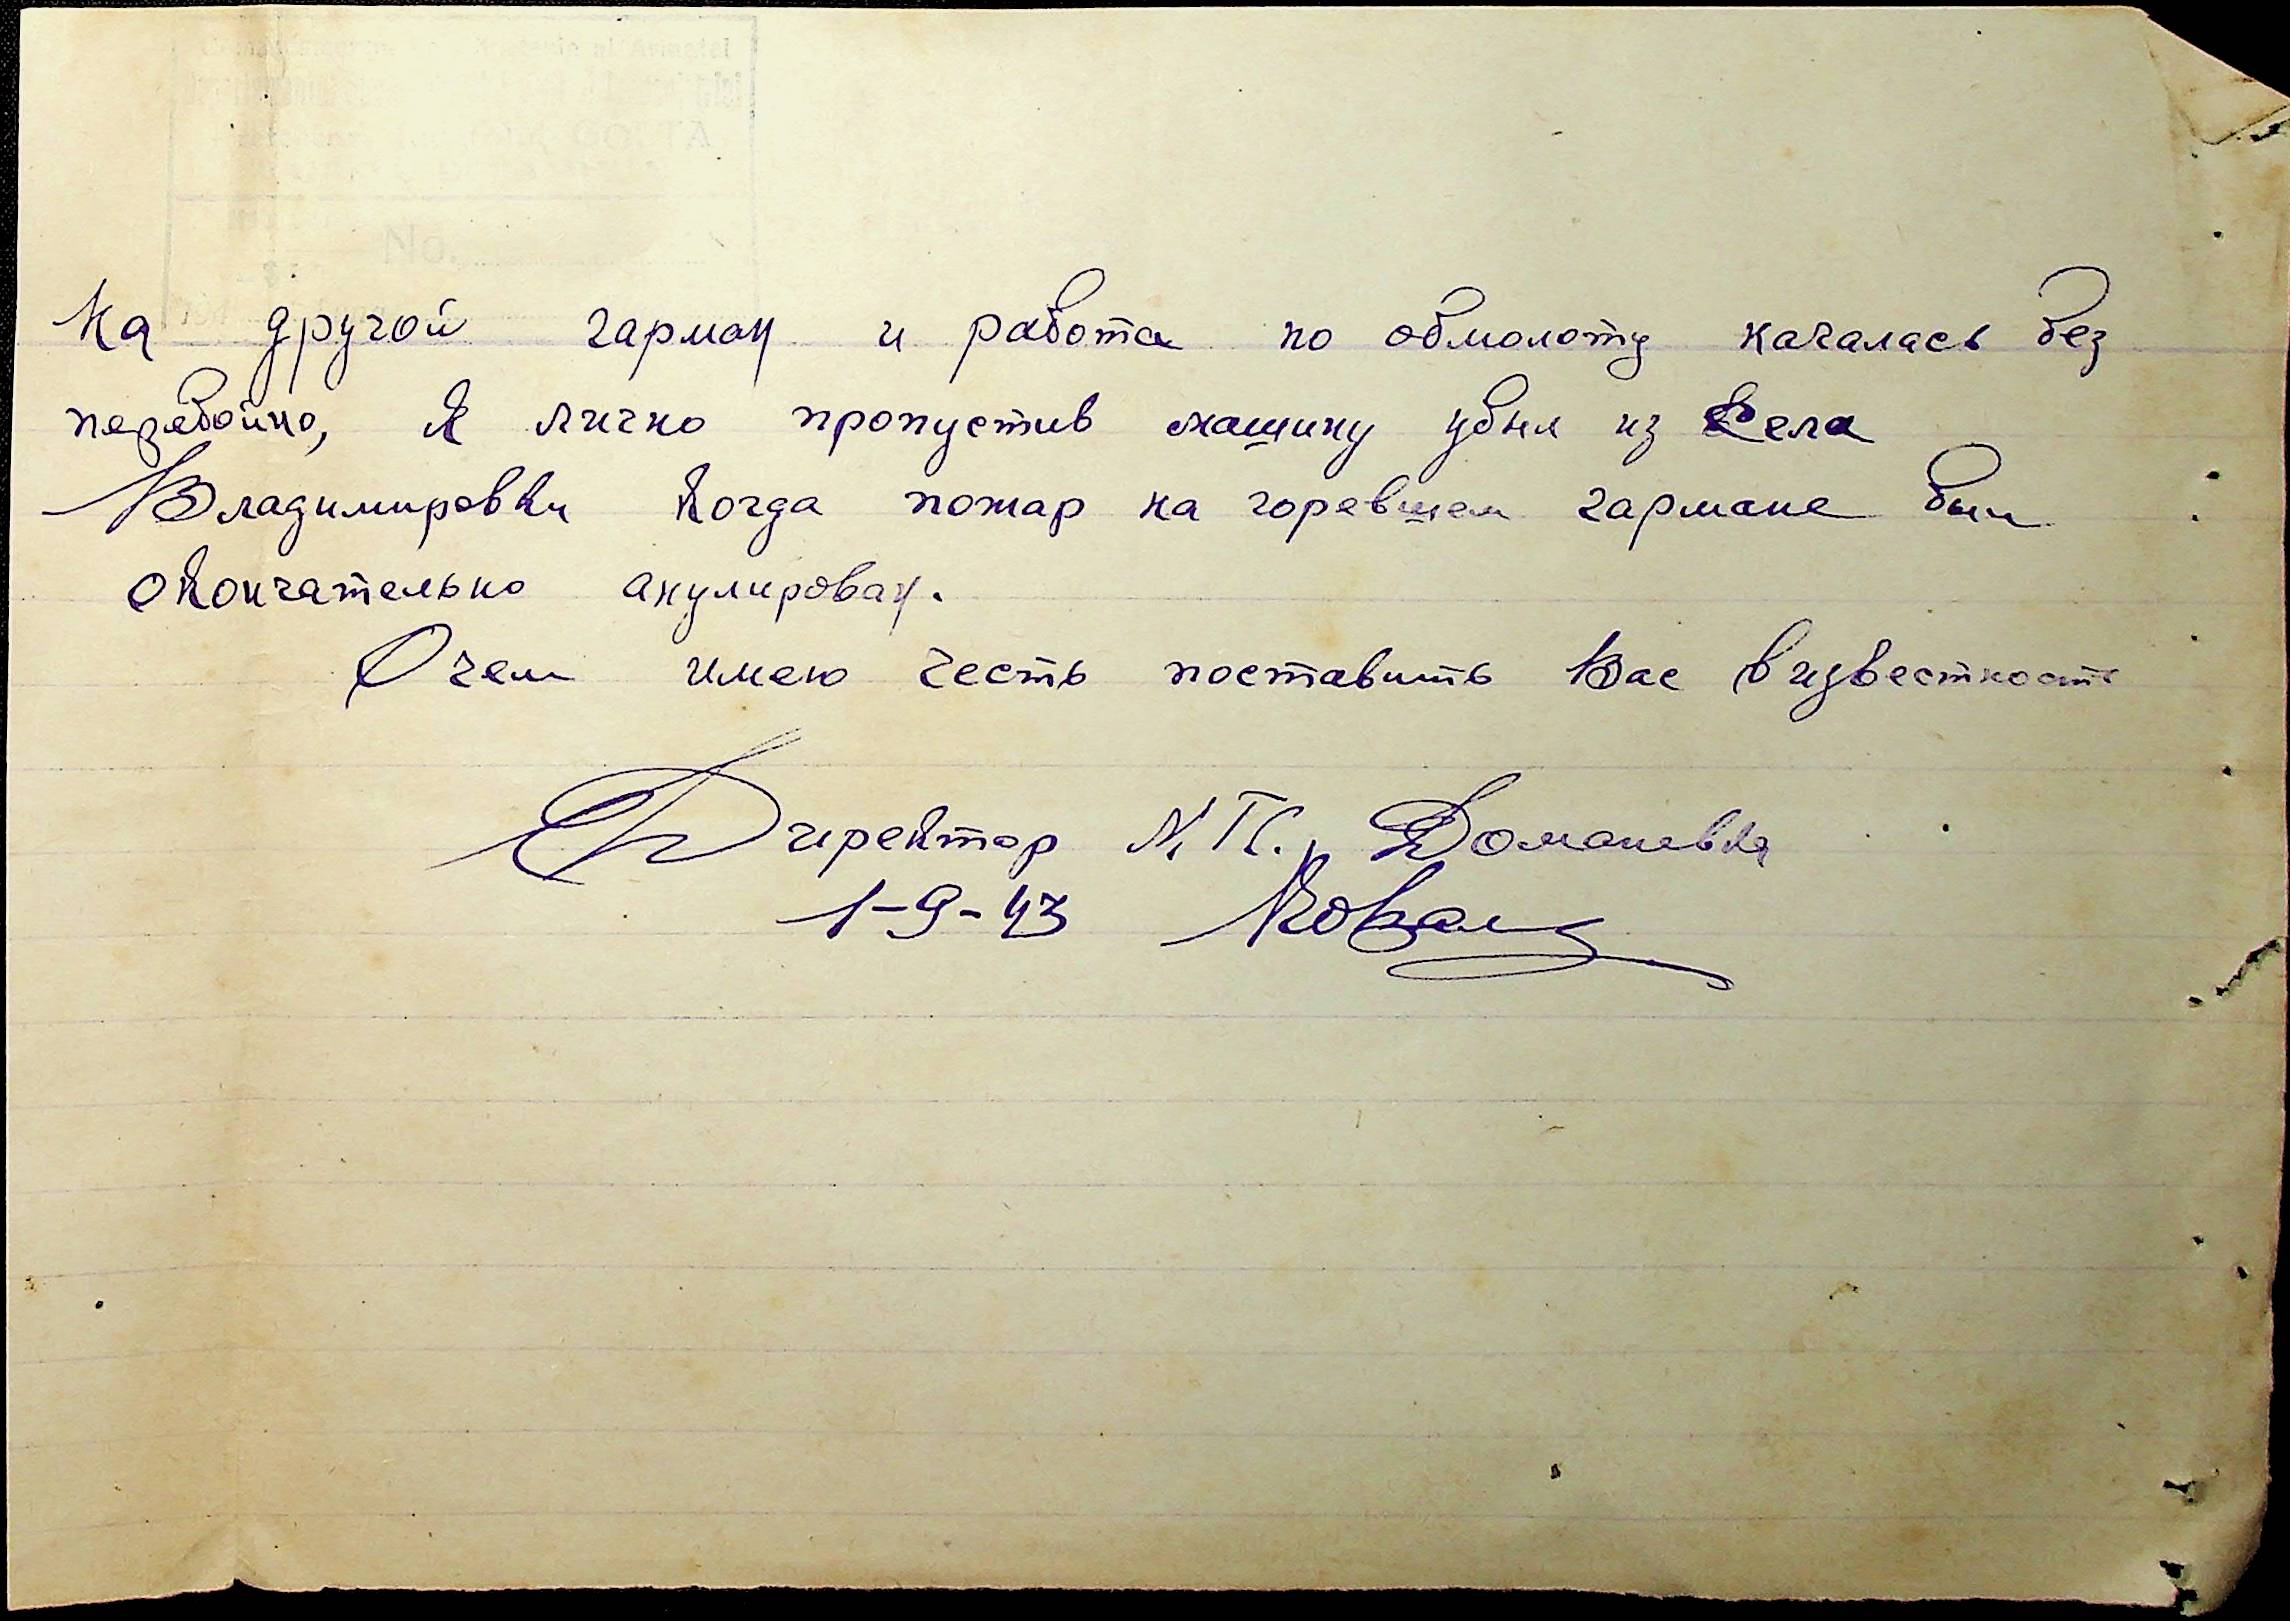 на другой гарман и работа по обмолоту началась без
перебойно, я лично пропустив машину убыл из села
Владимировки когда пожар на горевшем гармане был
окончательно анулирован.
О чем имею честь поставить Вас в известность
Директор М.Т.С. Доманевка
1-9-43
No.